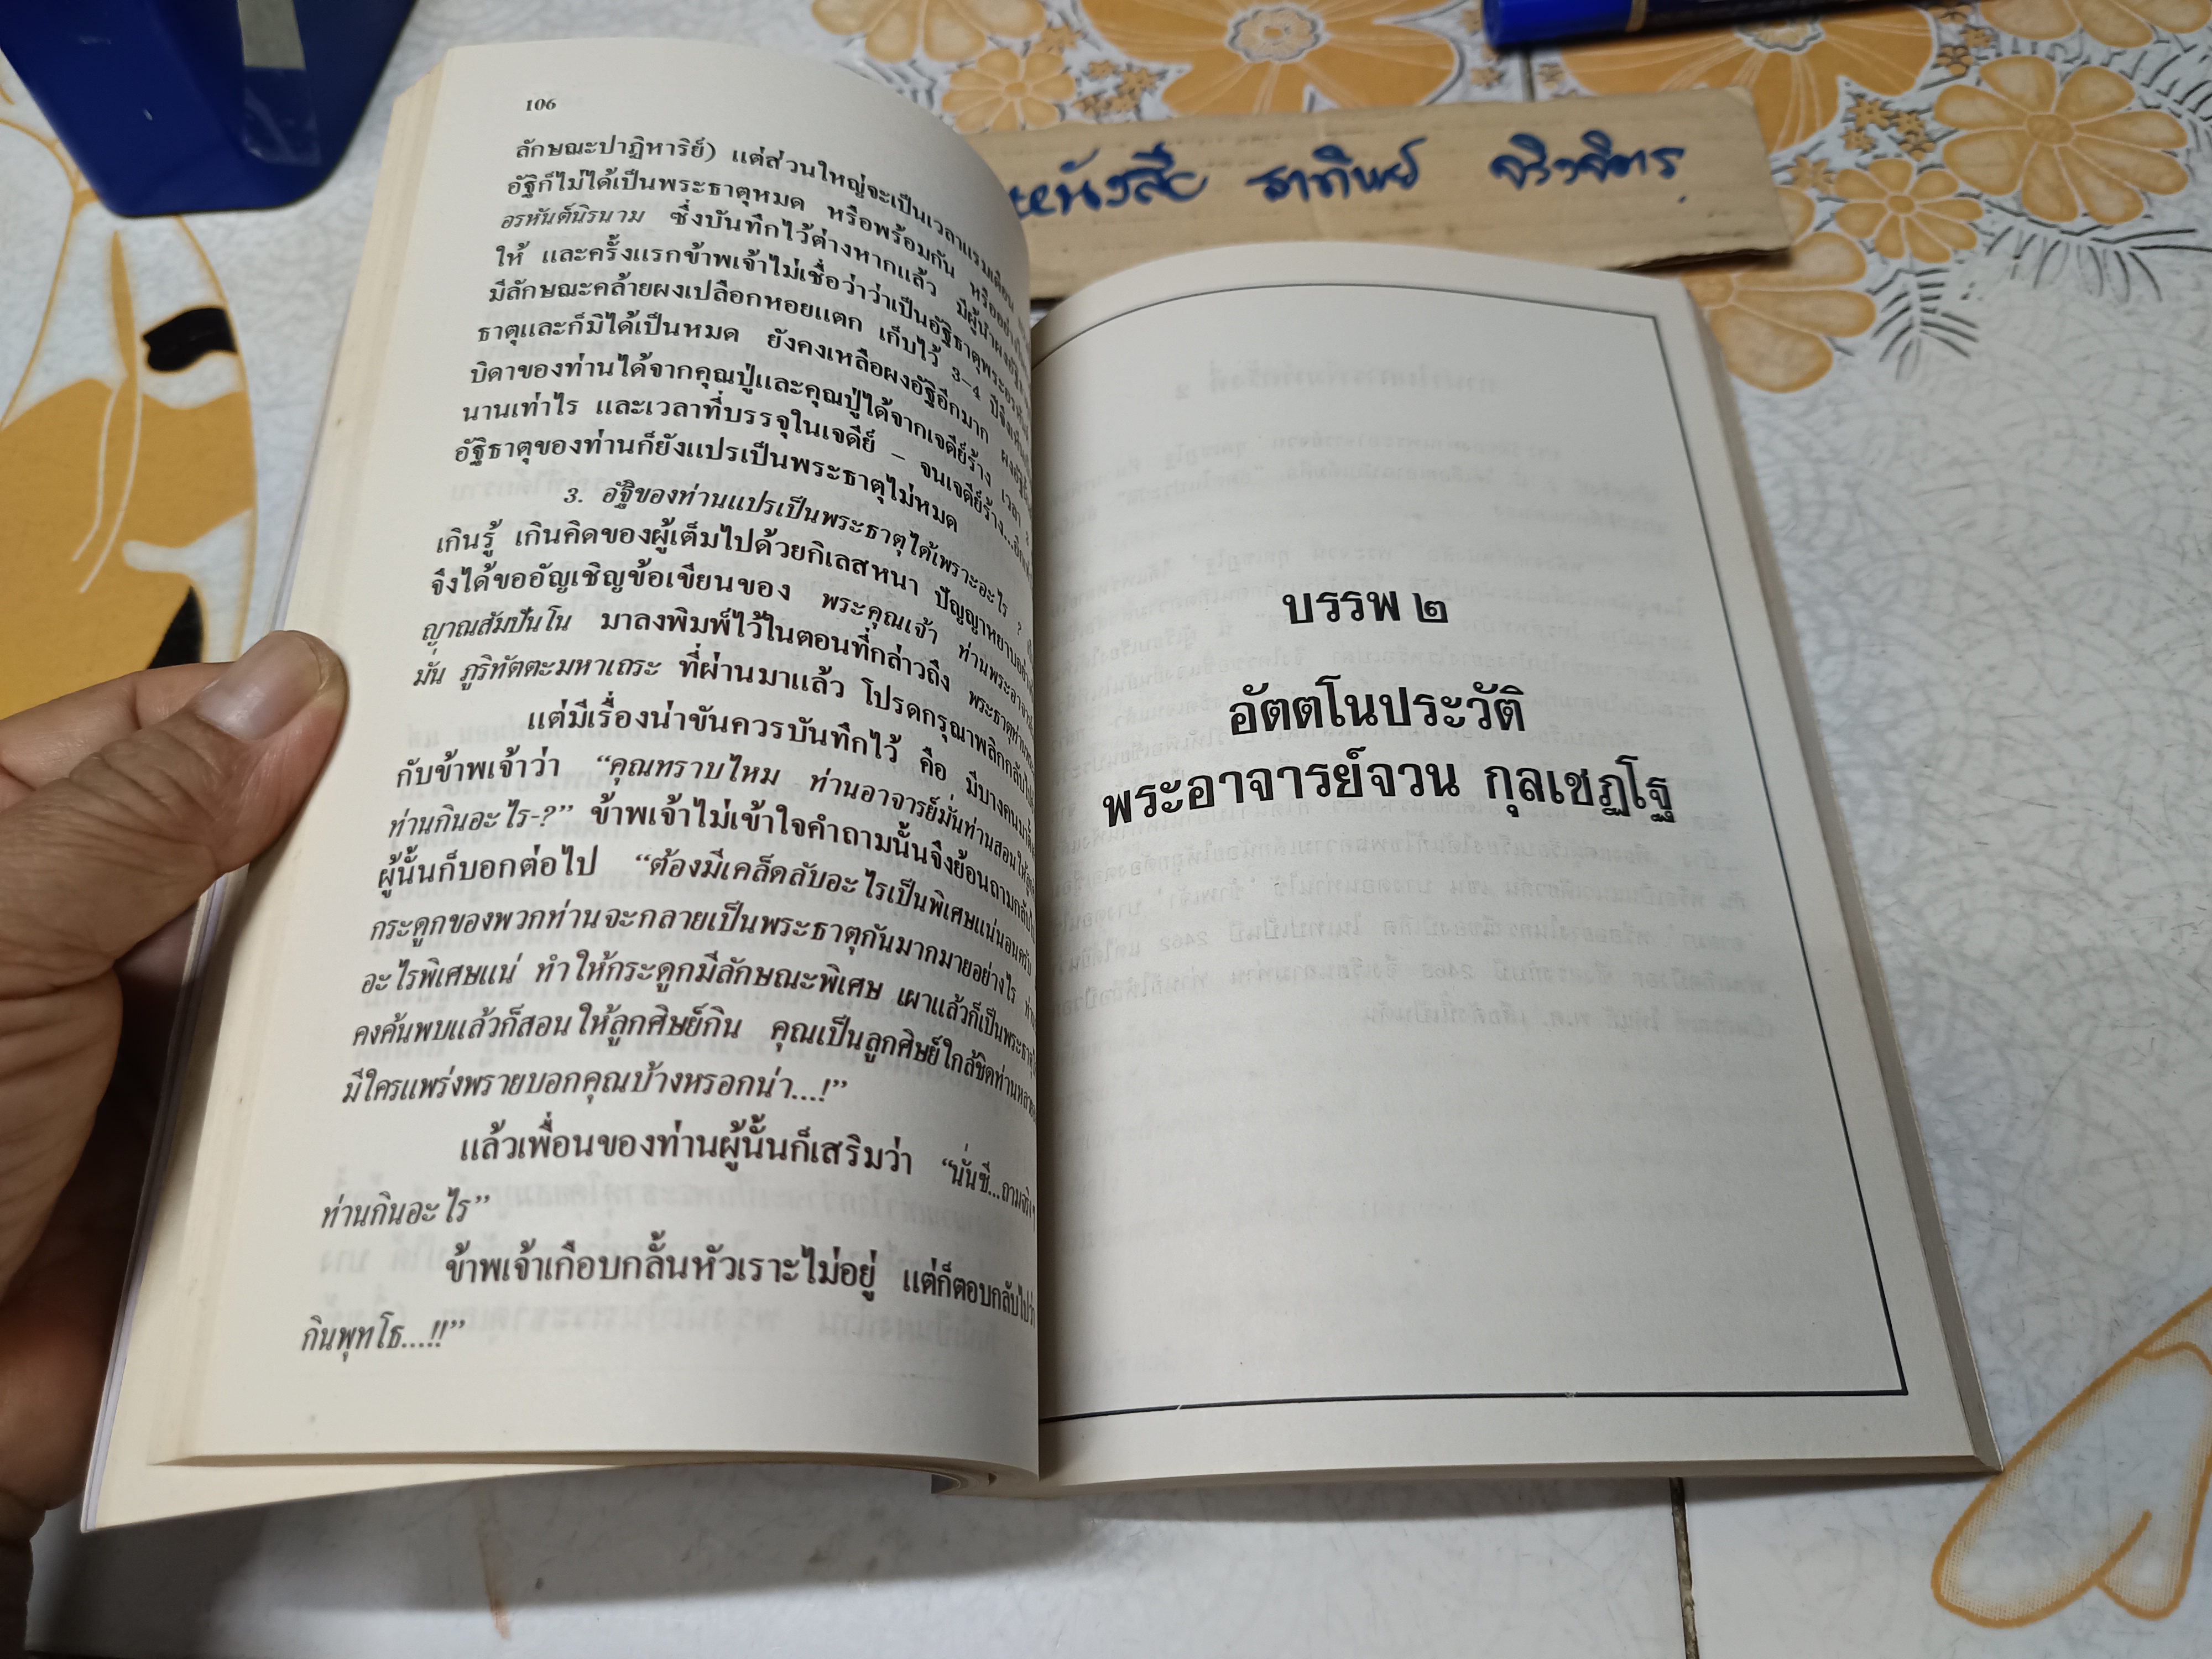 106
ลักษณะปาฏิหาริย์) แต่ส่วนใหญ่จะเป็นเวลาแรมเดือน
อัฐิก็ไม่ได้เป็นพระธาตุหมด หรือพร้อมกัน
อรหันต์นิรนาม ซึ่งบันทึกไว้ต่างหากแล้ว มีผู้นำผงอัฐิ
ให้ และครั้งแรกข้าพเจ้าไม่เชื่อว่าว่าเป็นอัฐิธาตุพระอรหันต์
มีลักษณะคล้ายผงเปลือกหอยแตก เก็บไว้ 3–4 ปีจึง
ธาตุและก็มิได้เป็นหมด ยังคงเหลือผงอัฐิอีกมาก ผงอัฐิ
บิดาของท่านได้จากคุณปู่และคุณปู่ได้จากเจดีย์ร้าง เวลา
นานเท่าไร และเวลาที่บรรจุในเจดีย์ – จนเจดีย์ร้าง...อีก
อัฐิธาตุของท่านก็ยังแปรเป็นพระธาตุไม่หมด
3. อัฐิของท่านแปรเป็นพระธาตุได้เพราะอะไร ?
เกินรู้ เกินคิดของผู้เต็มไปด้วยกิเลสหนา ปัญญาหยาบอย่าง
จึงได้ขออัญเชิญข้อเขียนของ พระคุณเจ้า ท่านพระอาจารย์
ญาณสัมปันโน มาลงพิมพ์ไว้ในตอนที่กล่าวถึง พระธาตุท่านพระ
มั่น ภูริทัตตะมหาเถระ ที่ผ่านมาแล้ว โปรดกรุณาพลิกกลับไป
แต่มีเรื่องน่าขันควรบันทึกไว้ คือ มีบางคนมา
กับข้าพเจ้าว่า “คุณทราบไหม ท่านอาจารย์มั่นท่านสอนให้ลูก
ท่านกินอะไร-?” ข้าพเจ้าไม่เข้าใจคำถามนั้นจึงย้อนถามกลับไป
ผู้นั้นก็บอกต่อไป “ต้องมีเคล็ดลับอะไรเป็นพิเศษแน่นอนครับ
กระดูกของพวกท่านจะกลายเป็นพระธาตุกันมากมายอย่างไร ท่าน
อะไรพิเศษแน่ ทำให้กระดูกมีลักษณะพิเศษ เผาแล้วก็เป็นพระธาตุ
คงค้นพบแล้วก็สอนให้ลูกศิษย์กิน คุณเป็นลูกศิษย์ใกล้ชิดท่านหลาย
มีใครแพร่งพรายบอกคุณบ้างหรอกน่า...!”
แล้วเพื่อนของท่านผู้นั้นก็เสริมว่า “นั่นซี...ถามจริงๆ
ท่านกินอะไร”
ข้าพเจ้าเกือบกลั้นหัวเราะไม่อยู่ แต่ก็ตอบกลับไปว่า
กินพุทโธ...!!”
หนังสือ ธาทิพย์
บรรพ ๒
อัตตโนประวัติ
พระอาจารย์จวน กุลเชฏโฐ